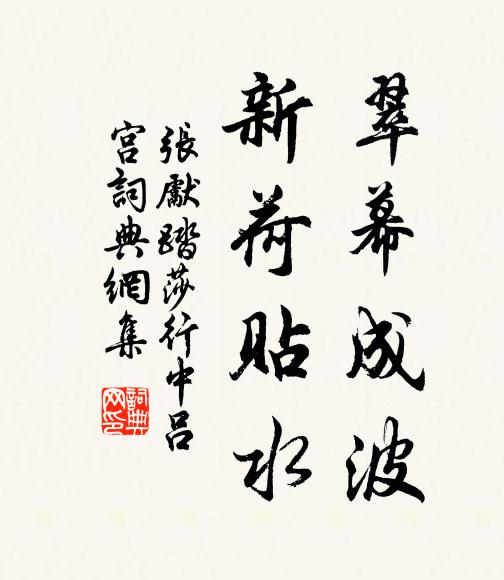 翠幕成波
新荷貼水
張獻踏莎行中呂
宮詞典網集
詞典网印